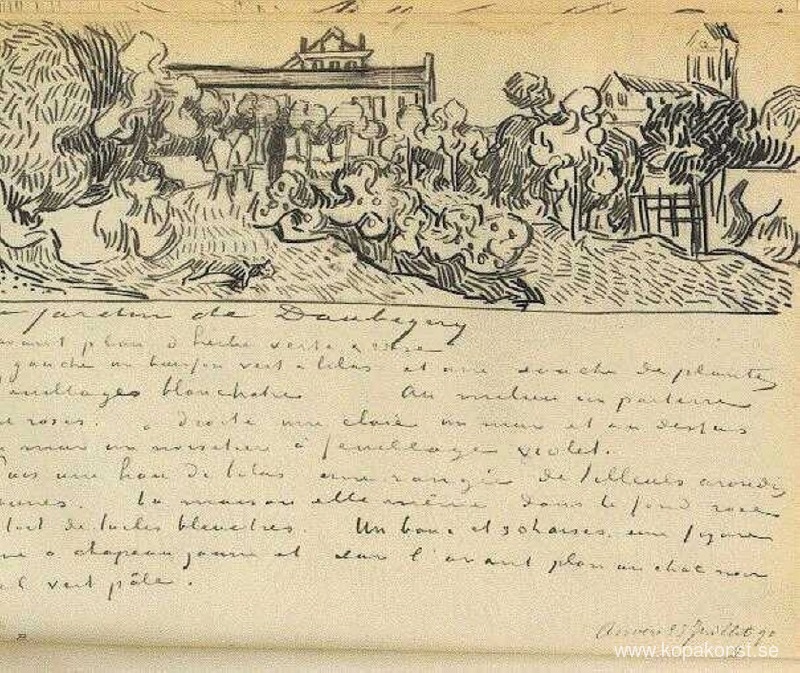 jardin de Daubigny
avant plan d'herbe verte & rose
gauche un buisson vert & lilas et une souche de plantes
feuillages blanchatre Au milieu un parterre
de roses. à droite une claie un mur et au dessus
mur un noisetier à feuillage violet.
Puis une haie de lilas une rangée de tilleuls arrondis
jaunes. La maison elle même dans le fond rose
toit de tuiles bleuatres. Un banc et 3 chaises, une figure
à chapeau jaune et sur l'avant plan un chat noir
vert pâle.
Auvers 23 Juillet 90
www.kopakonst.se